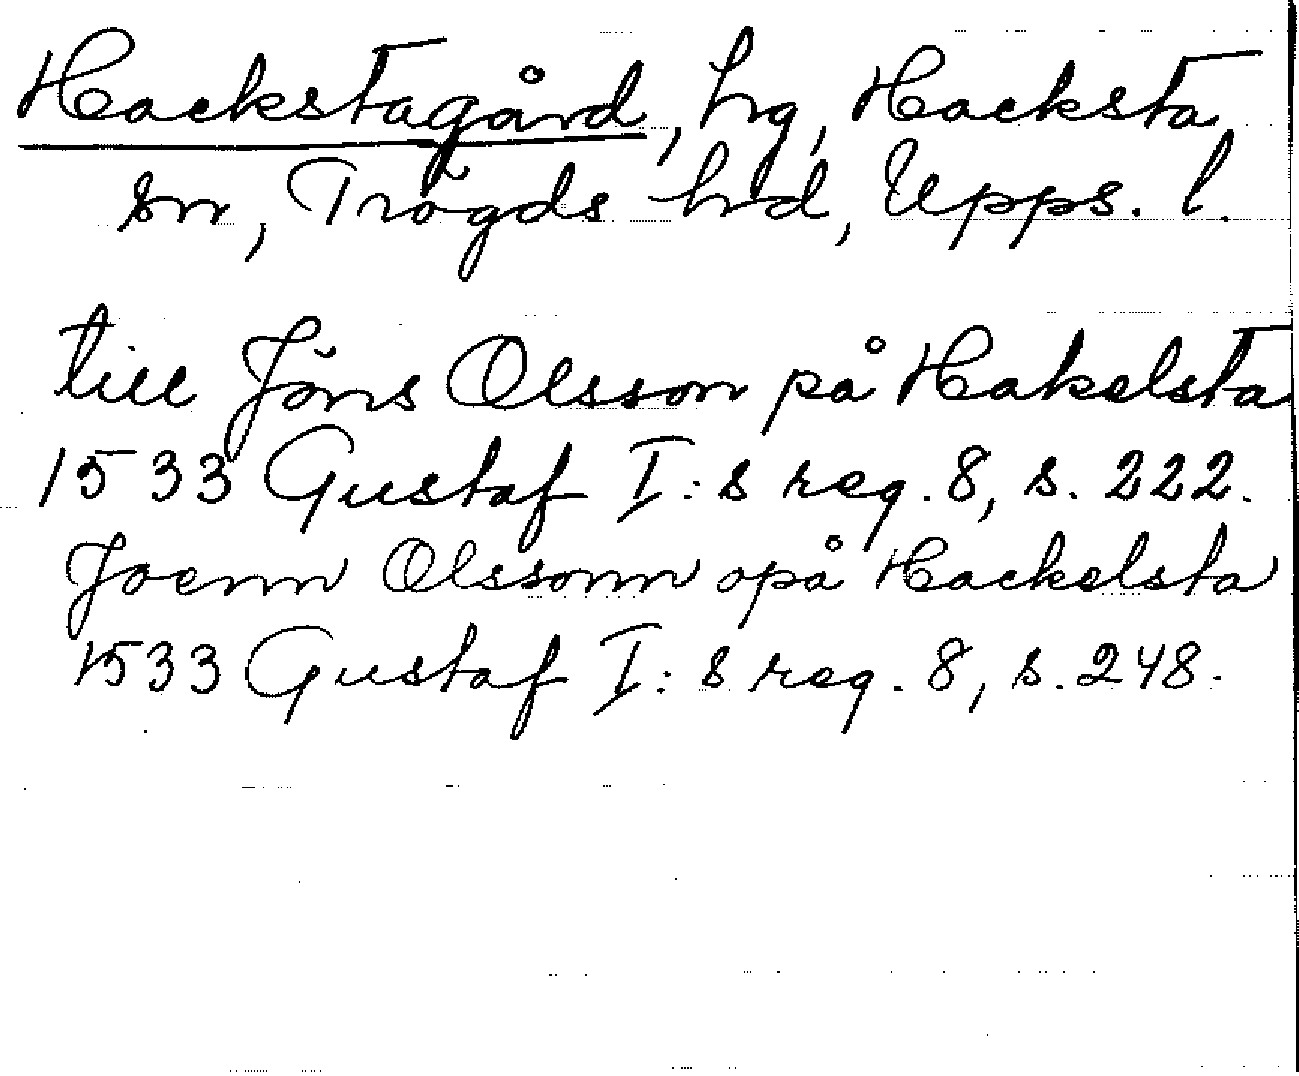 Hackstagård, hg, Hacksta
sn, Trögds hrd, Upps. l.
till Jöns Olsson på Hakelsta
1533 Gustaf I:s reg. 8, s. 222.
Joenn Olssonn opå Hackelsta
1533 Gustaf I:s reg. 8, s. 248.